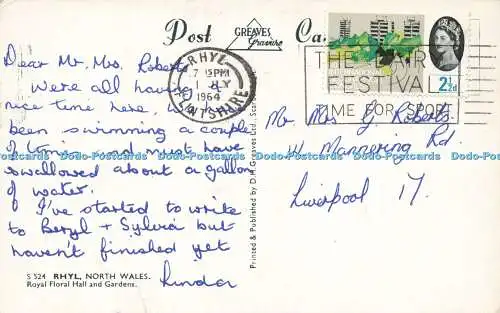 Post Card
GREAVES
Gravure
Dear Mr. Mrs. Roberts
Were all having a
nice time here. I've
been swimming a couple
of times and must have
swallowed about a gallon
of water.
I've started to write
to Beryl + Sylvia but
haven't finished yet
Linda
S 524 RHYL, NORTH WALES.
Royal Floral Hall and Gardens.
Printed & Published by D.H. Greaves Ltd.
RHYL
7 15PM
JLY
1964
FLINTSHIRE
THE
FESTIVAL
TIME FOR SPORT
2½d
Mr Mrs G Roberts
Mannering Rd
Liverpool 17.
Dodo-Postcards Dodo-Postcards Dodo-Postcards Dodo-Postcards Dodo-Postcards